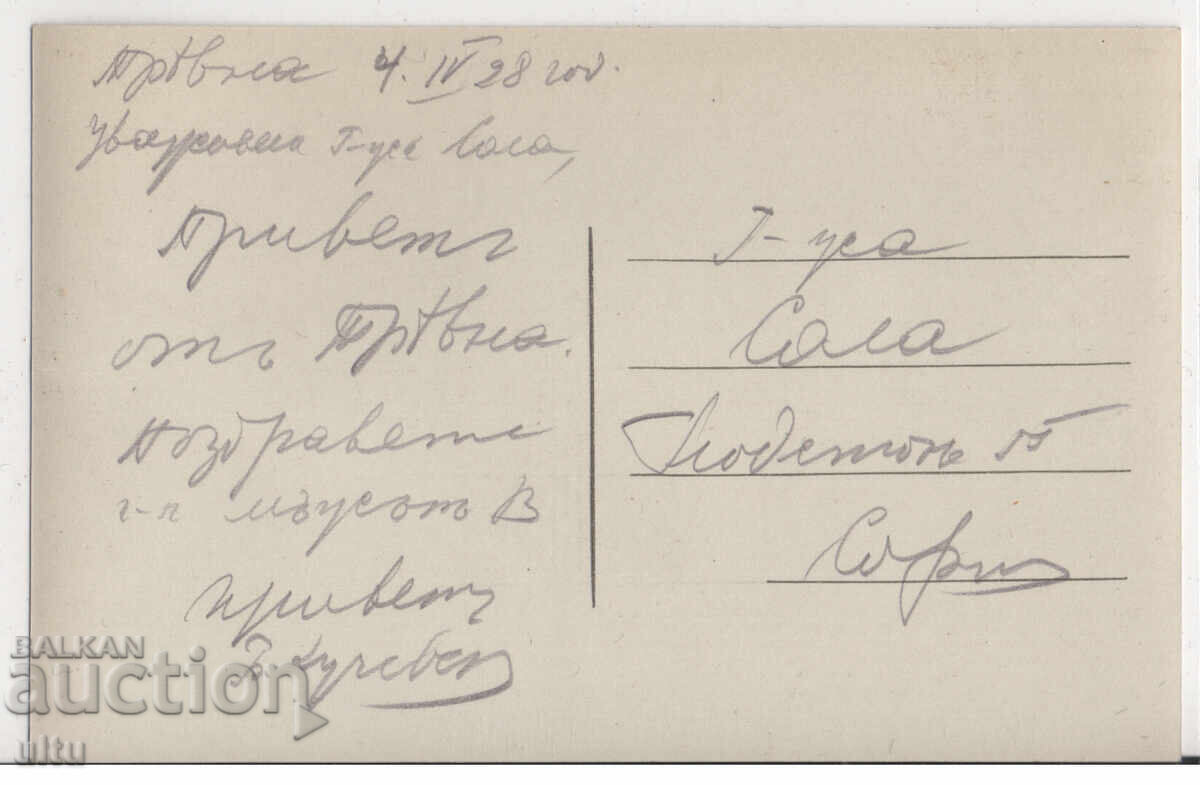 Трѣвна 4. IV 28 год.
Уважаема Г-ца Сала,
Приветъ
отъ Трѣвна.
Поздравете
г-н мъжътъ В
приветъ
Г-ца
Сала
15
София
BALKAN
auction
ultu